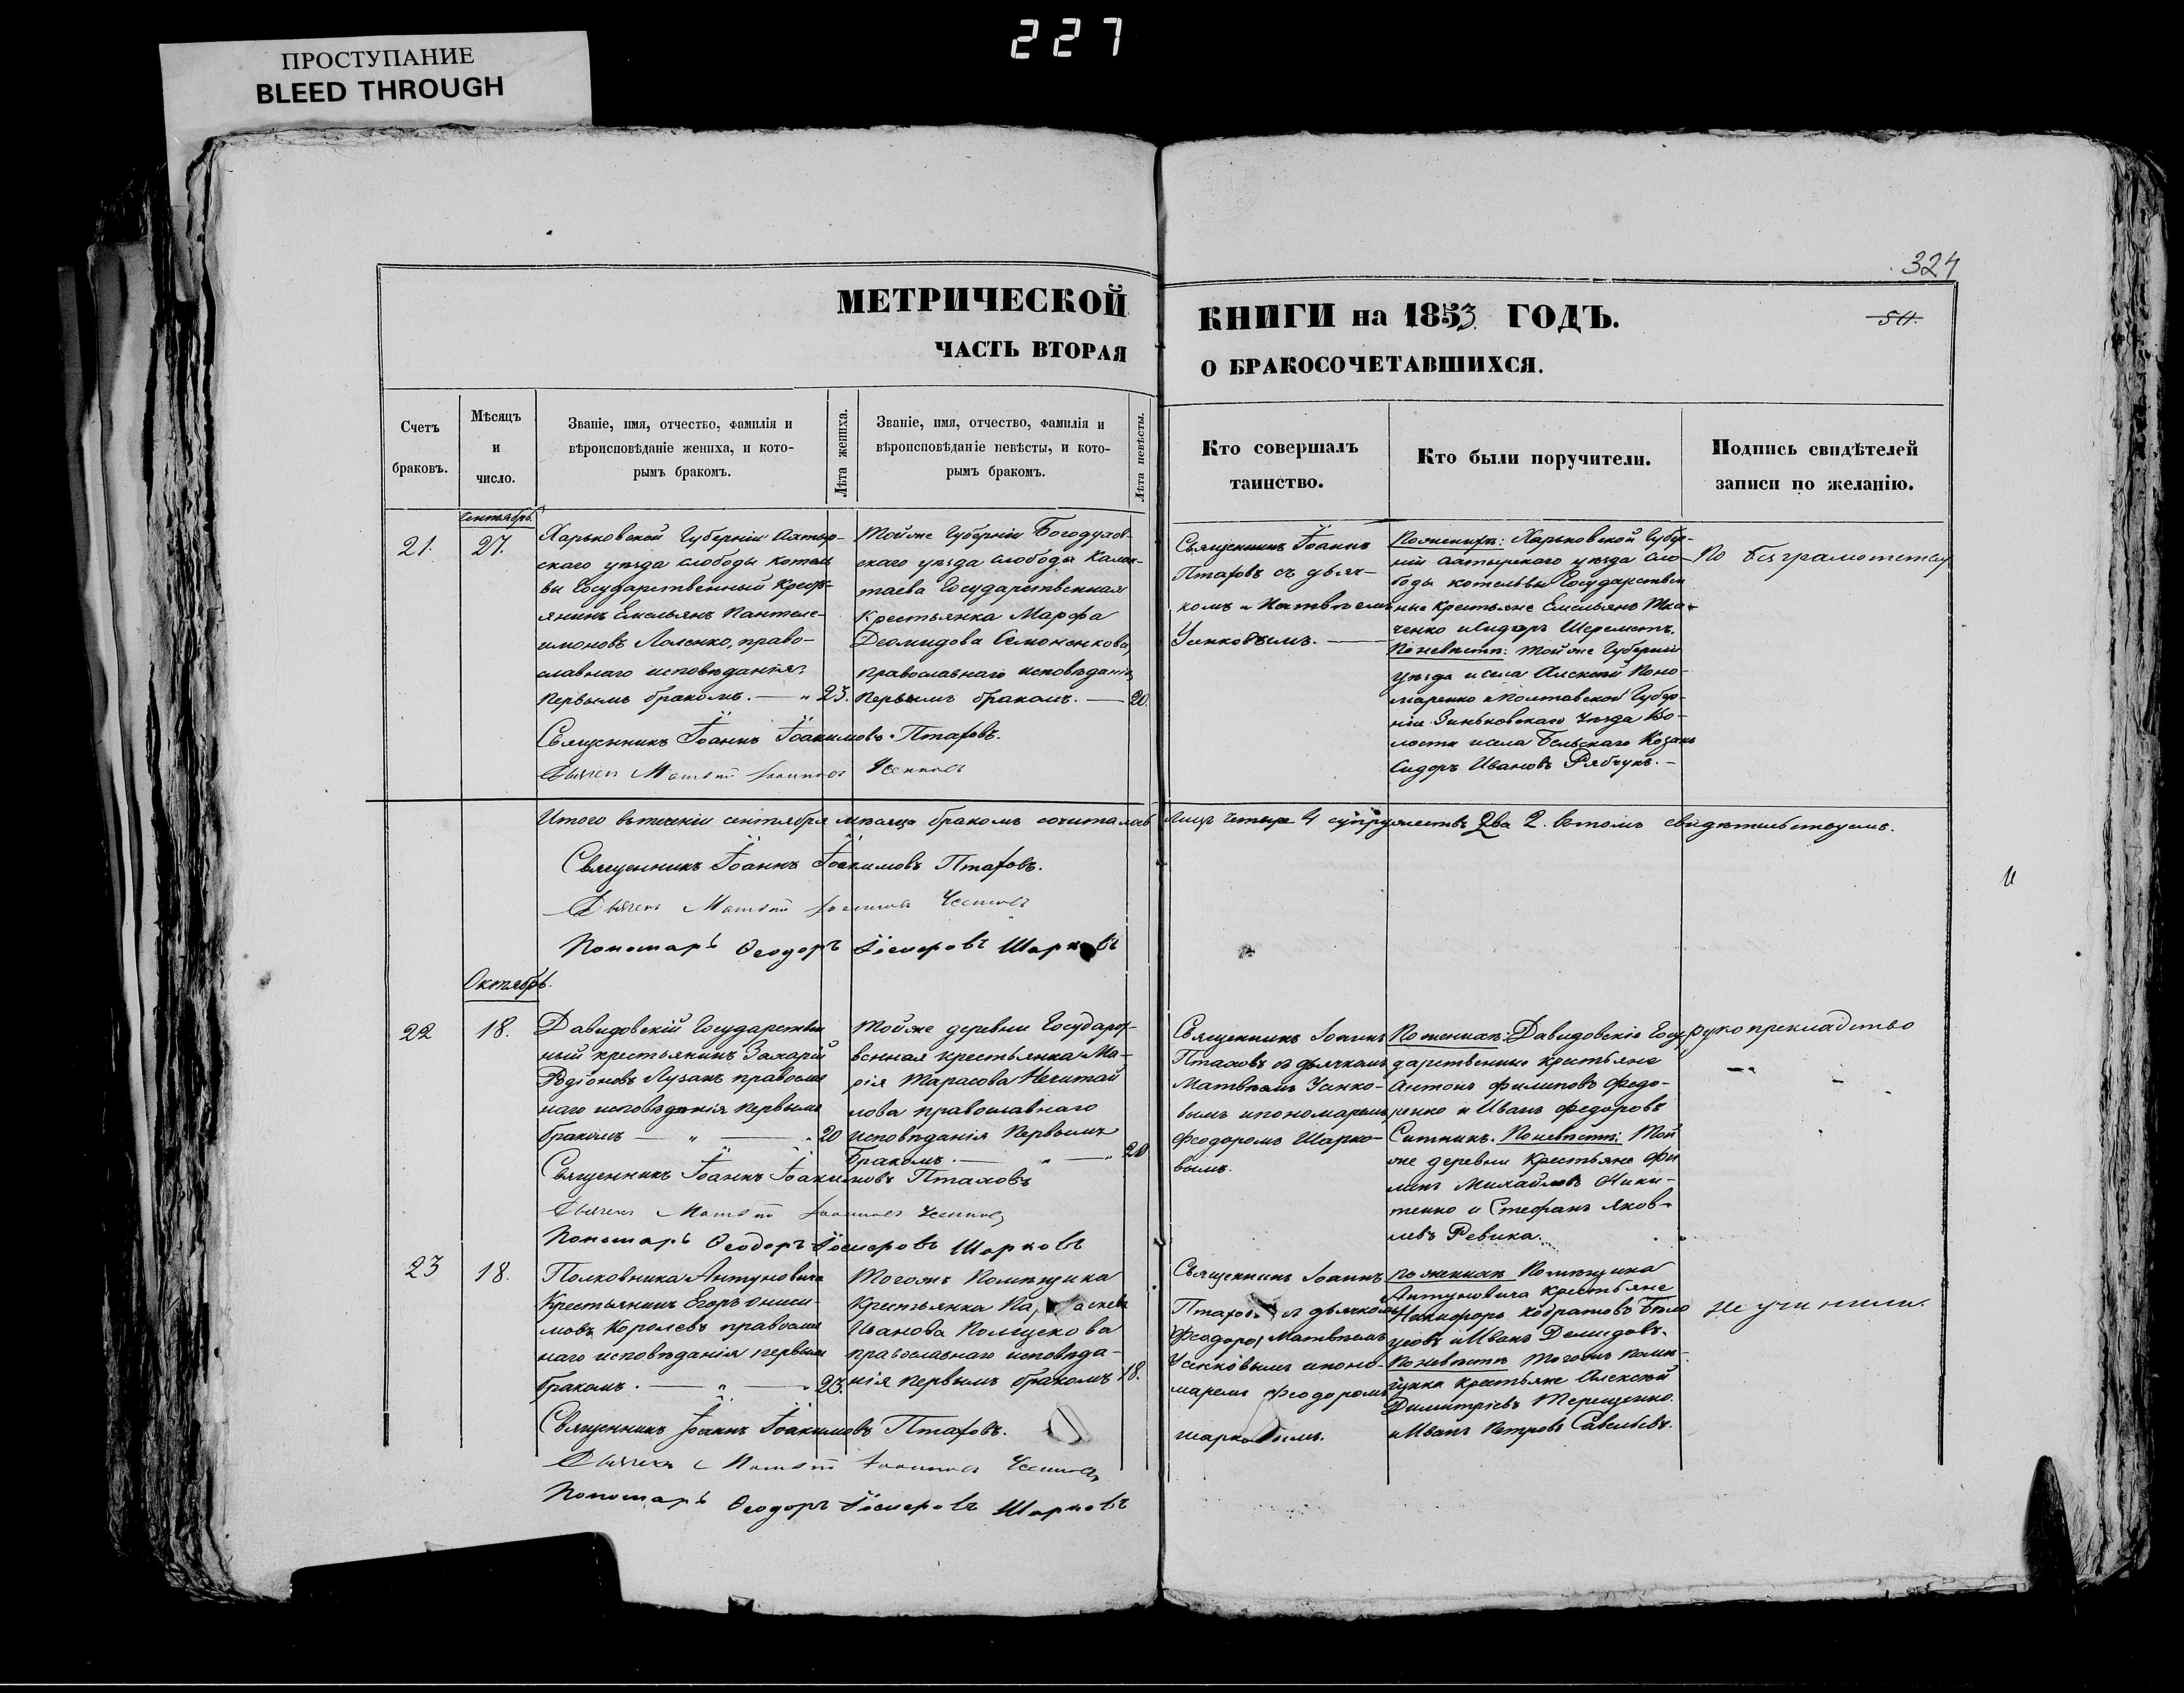 227
ПРОСТУПАНИЕ
BLEED THROUGH
324
МЕТРИЧЕСКОЙ
КНИГИ на 1853 ГОДЪ.
ЧАСТЬ ВТОРАЯ
О БРАКОСОЧЕТАВШИХСЯ.
Счетъ
браковъ.
Мѣсяцъ
и
число.
Званіе, имя, отчество, фамилія и
вѣроисповѣданіе жениха, и кото-
рымъ бракомъ.
Лѣта жениха.
Званіе, имя, отчество, фамилія и
вѣроисповѣданіе невѣсты, и кото-
рымъ бракомъ.
Лѣта невѣсты.
Кто совершалъ
таинство.
Кто были поручители.
Подпись свидѣтелей
записи по желанію.
Сентябрь.
21.
27.
Харьковской Губерніи Ахтыр-
скаго уѣзда слободы Котель
вы Государственный Кресть-
янинъ Емельянъ Пантеле-
имоновъ Лаленко, право-
славнаго исповѣданія.
Первымъ бракомъ. — „ 23.
Тойже Губерніи Богодухов-
скаго уѣзда слободы Колон-
таева Государственная
Крестьянка Марфа
Деомидова Семоненкова,
православнаго исповѣданія
Первымъ бракомъ. — 20.
Священникъ Іоаннъ
Птаховъ съ дьяч-
комъ Матвѣемъ
Усиковымъ. —
По женихѣ: Харьковской Губер-
ніи Ахтырскаго уѣзда сло-
боды Котельвы Государствен
ные Крестьяне Емельянъ Тка-
ченко и Сидоръ Шереметъ.
По невѣстѣ: Тойже Губерніи
уѣзда и села Алексѣй Поно-
маренко и Полтавской Губер-
ніи Зиньковскаго уѣзда Во-
лости и села Бельскаго Козакъ
Сидоръ Ивановъ Рябчукъ. —
По безграмотству
Священникъ Іоаннъ Іоакимовъ Птаховъ.
Дьячекъ Матѳій Іоанновъ Усиковъ
Итого въ теченіи сентября мѣсяца бракомъ сочиталось
Лицъ четыре 4 супружествъ Два 2. въ томъ свидѣтельствуемъ.
Священникъ Іоаннъ Іоакимовъ Птаховъ.
Дьячекъ Матѳій Іоанновъ Усиковъ
Пономарь Ѳеодоръ Шарковъ
Октябрь.
22
18.
Давидовскій Государствен
ный крестьянинъ Захарій
Родіоновъ Лузанъ православ
наго исповѣданія первымъ
бракомъ — „ — „ 20
Тойже деревни Государст-
венная крестьянка Ма-
рія Тарасова Нечитай
лова православнаго
исповѣданія Первымъ
бракомъ. — „ — „ 20
Священникъ Іоаннъ
Птаховъ съ дьячкомъ
Матвѣемъ Усико-
вымъ и пономаремъ
Феодоромъ Шарко-
вымъ.
По женихѣ: Давидовскіе Госу
дарственные крестьяне
Антонъ Филиповъ Федо-
ренко и Иванъ Федоровъ
Ситникъ. По невѣстѣ: Той
же деревни Крестьяне Фи
липъ Михайловъ Ники-
тенко и Стефанъ Яков-
левъ Ревика.
рукоприкладство
Священникъ Іоаннъ Іоакимовъ Птаховъ
Дьячекъ Матѳій Іоанновъ Усиковъ
Пономарь Ѳеодоръ Шарковъ
23
18.
Полковника Антуновича
Крестьянинъ Егоръ Ониси-
мовъ Королевъ православ
наго исповѣданія первымъ
бракомъ. — „ — „ 23.
Тогожъ Помѣщика
Крестьянка
Иванова
православнаго исповѣда-
нія Первымъ бракомъ 18.
Священникъ Іоаннъ
Птаховъ съ дьячкомъ
Матвѣемъ
Усиковымъ и поно-
маремъ Феодоромъ
Шарковымъ.
По женихѣ Помѣщика
Антуновича Крестьяне
Никифоръ
и Иванъ Демидовъ.
По невѣстѣ Тогожъ Помѣ-
щика крестьяне Алексѣй
Димитріевъ Терещенко.
и Иванъ Петровъ Савельевъ.
не учинили.
Священникъ Іоаннъ Іоакимовъ Птаховъ.
Дьячекъ Матѳій Іоанновъ Усиковъ
Пономарь Ѳеодоръ Шарковъ